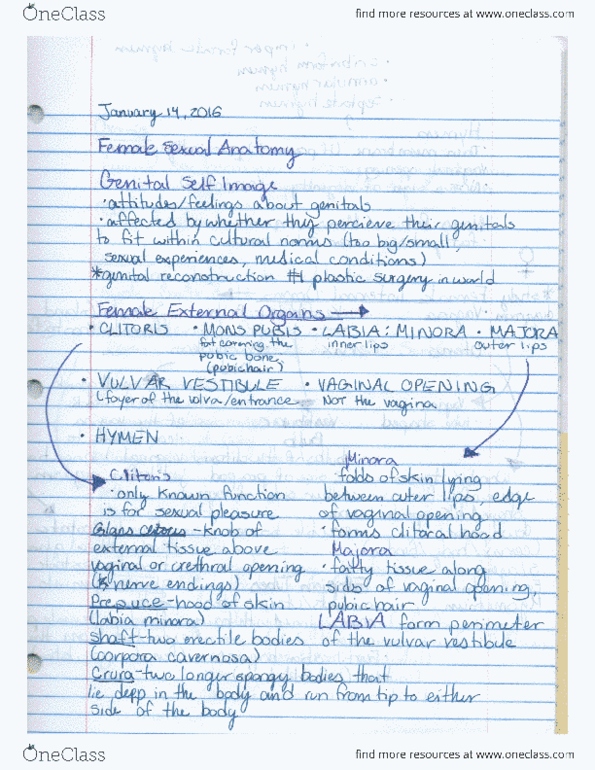 OneClass
find more resources at www.oneclass.com
January 14, 2016
Female Sexual Anatomy
Genital Self Image
• attitudes/feelings about genitals
• affected by whether they percieve their genitals
to fit within cultural norms (too big/small,
sexual experiences, medical conditions)
*genital reconstruction #1 plastic surgery in world
Female External Organs →
• CLITORIS • MONS PUBIS • LABIA: MINORA • MAJORA
fat covering the inner lips outer lips
pubic bone
(pubic hair)
• VULVAR VESTIBULE • VAGINAL OPENING
foyer of the volva/entrance NOT the vagina
• HYMEN
Clitoris
• only known function
is for sexual pleasure
Glans - knob of
external tissue above
vaginal or urethral opening
nerve endings)
Prepuce - hood of skin
(labia minora)
shaft - two erectile bodies
(corpora cavernosa)
Crura - two longer spongy bodies that
lie depp in the body and run from tip to either
side of the body
Minora
• folds of skin lying
between outer lips, edge
of vaginal opening
• forms clitoral hood
Majora
• fatty tissue along
sides of vaginal opening,
pubic hair
LABIA form perimeter
of the vulvar vestibule
OneClass
find more resources at www.oneclass.com